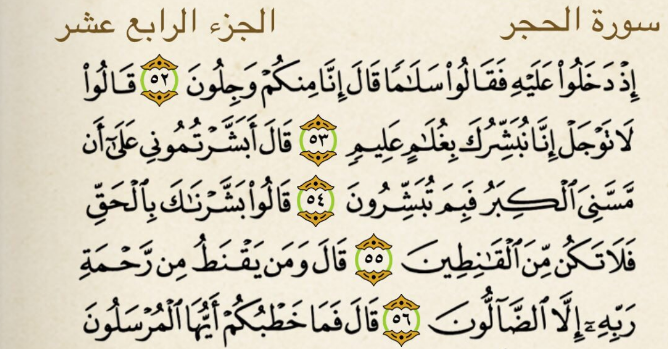 سورة الحجر الجزء الرابع عشر
إِذْ دَخَلُوا۟ عَلَيْهِ فَقَالُوا۟ سَلَـٰمًا قَالَ إِنَّا مِنكُمْ وَجِلُونَ ٥٢ قَالُوا۟
لَا تَوْجَلْ إِنَّا نُبَشِّرُكَ بِغُلَـٰمٍ عَلِيمٍ ٥٣ قَالَ أَبَشَّرْتُمُونِى عَلَىٰٓ أَن
مَّسَّنِىَ ٱلْكِبَرُ فَبِمَ تُبَشِّرُونَ ٥٤ قَالُوا۟ بَشَّرْنَـٰكَ بِٱلْحَقِّ
فَلَا تَكُن مِّنَ ٱلْقَـٰنِطِينَ ٥٥ قَالَ وَمَن يَقْنَطُ مِن رَّحْمَةِ
رَبِّهِۦٓ إِلَّا ٱلضَّآلُّونَ ٥٦ قَالَ فَمَا خَطْبُكُمْ أَيُّهَا ٱلْمُرْسَلُونَ